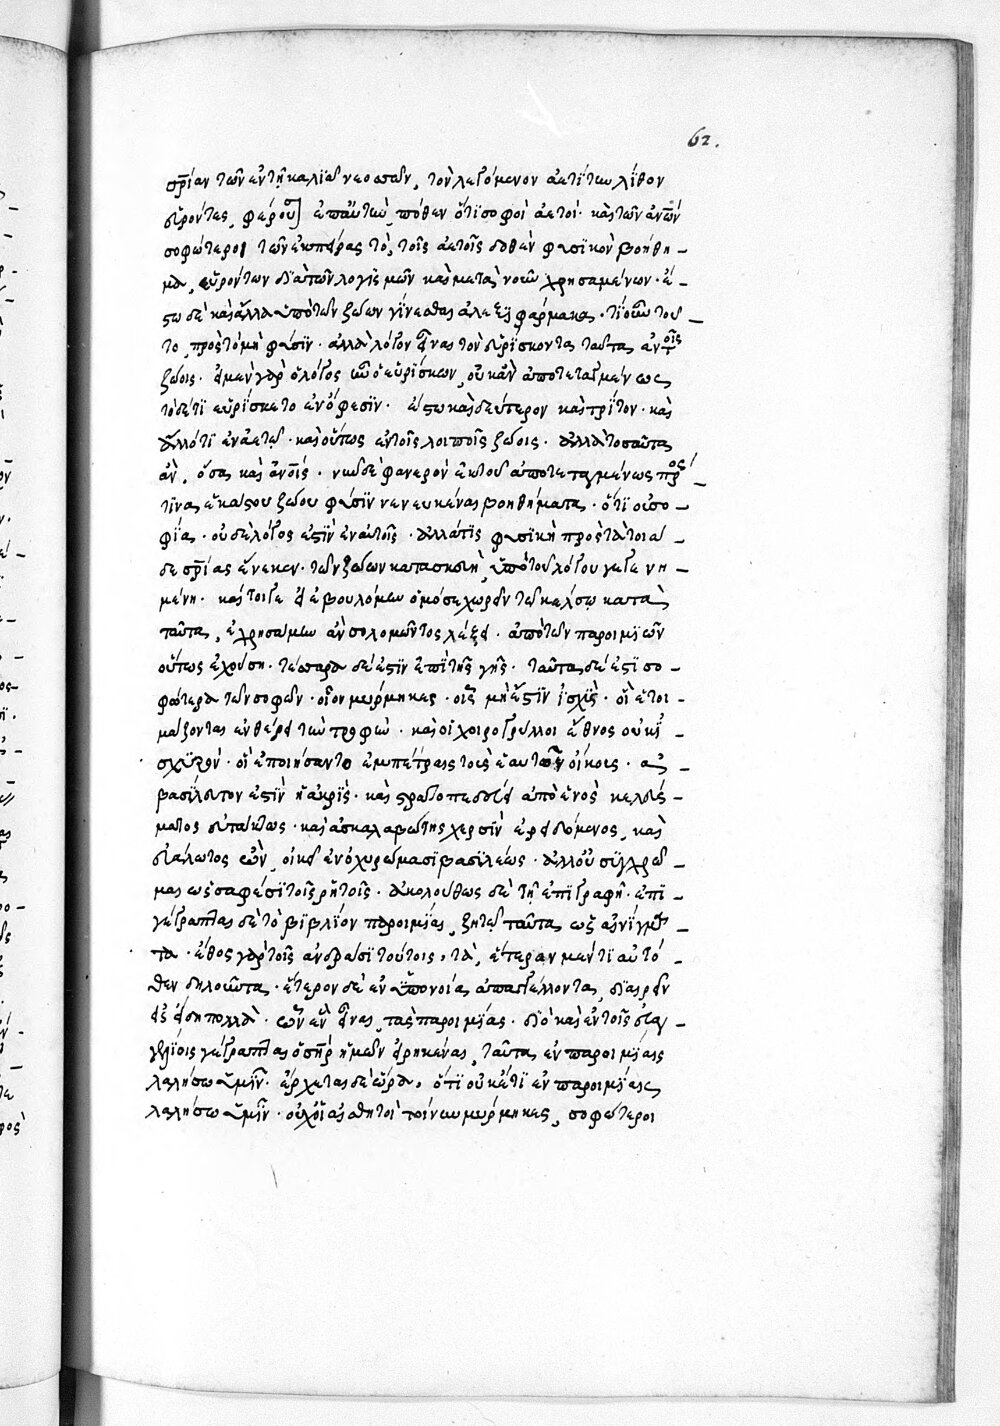 62.
σρίαν τῶν ἐν τῇ καλιᾷ νεοσσῶν, τὸν λεγόμενον ἀετίτην λίθον
εὑρόντες φέρουσιν ἐπ' αὐτὴν, πόθεν ὅτι σοφοὶ ἀετοί· καὶ τῶν ἀνων
σοφώτεροι τῶν ἐκ πείρας τὸ, τοῖς ἀετοῖς δοθὲν φυσικὸν βοήθη-
μα, εὑρόντων διὰ τῶν λογισμῶν καὶ μετὰ νοῦ χρησαμένων· ἔ-
στω δὲ καὶ ἄλλα ὑπὸ τῶν ζώων γίνεσθαι ἀλεξιφάρμακα. τί οὖν τοῦ-
το πρὸς τὸ μὴ φύσιν· ἀλλὰ λόγον εἶναι τὸν εὑρίσκοντα ταῦτα ἐν τοῖς
ζώοις· εἰ μὲν γὰρ ὁ λόγος ἦν ὁ εὑρίσκων, οὐκ ἂν ἀποτεταγμένως
τόδέ τι εὑρίσκετο ἐν ὄφεσιν· ἔστω καὶ δεύτερον καὶ τρίτον· καὶ
ἄλλό τι ἐν ἀετῷ· καὶ οὕτως ἐν τοῖς λοιποῖς ζώοις· ἀλλὰ τοσαῦτα
ἂν, ὅσα καὶ ἀνοις· νῦν δὲ φανερὸν ἐκ τοῦ ἀποτεταγμένως πρὸς
τινα ἑκάστου ζώου φύσιν νενευκέναι βοηθήματα· ὅτι οὐ σο-
φία· οὐδὲ λόγος ἐστὶν ἐν αὐτοῖς· ἀλλά τις φυσικὴ πρὸς τὰ τοιά-
δε σρίας ἕνεκεν· τῶν ζώων κατασκευὴ, ὑπὸ τοῦ λόγου γεγενη-
μένη· καί τοι γε εἰ ἐβουλόμην ὁμόσε χωρεῖν τῷ κέλσῳ κατὰ
ταῦτα, ἐχρησάμην ἂν σολομῶντος λέξει· ἀπὸ τῶν παροιμιῶν
οὕτως ἐχούσῃ· τέσσαρα δέ ἐστιν ἐπὶ τῆς γῆς· ταῦτα δέ ἐστι σο-
φώτερα τῶν σοφῶν· οἷον μύρμηκες· οἷς μὴ ἔστιν ἰσχὺς· οἳ ἑτοι-
μάζονται ἐν θέρει τὴν τροφήν· καὶ οἱ χοιρογρύλλιοι ἔθνος οὐκ ἰ-
σχυρόν· οἳ ἐποιήσαντο ἐν πέτραις τοὺς ἑαυτῶν οἴκους· ἀ-
βασίλευτόν ἐστιν ἡ ἀκρὶς· καὶ στρατοπεδεύει ἀπὸ ἑνὸς κελεύς-
ματος εὐτάκτως· καὶ ἀσκαλαβώτης χερσὶν ἐρειδόμενος, καὶ
εὐάλωτος ὢν, οἰκεῖ ἐν ὀχυρώμασι βασιλέως· ἀλλ' οὐ συγχρῶ-
μαι ὡς σαφέσι τοῖς ῥητοῖς· ἀκολούθως δὲ τῇ ἐπιγραφῇ· ἐπι-
γέγραπται δὲ τὸ βιβλίον παροιμίαι, ζητῶ ταῦτα ὡς αἰνίγμα-
τα· ἔθος γὰρ τοῖς ἀνδράσι τούτοις, τὰ, ἕτερον μέν τι αὐτό-
θεν δηλοῦντα· ἕτερον δὲ ἐν ὑπονοίᾳ ἀπαγγέλλοντα, διαιρεῖν
εἰς εἴδη πολλὰ· ὧν ἓν εἶναι, τὰς παροιμίας· διὸ καὶ ἐν τοῖς εὐαγ-
γελίοις γέγραπται ὁ σηρ ἡμῶν εἰρηκέναι, ταῦτα ἐν παροιμίαις
λελάληκα ὑμῖν· ἔρχεται δὲ ὥρα, ὅτι οὐκέτι ἐν παροιμίαις
λαλήσω ὑμῖν· οὐχ οἱ αἰσθητοὶ τοίνυν μύρμηκες, σοφώτεροι